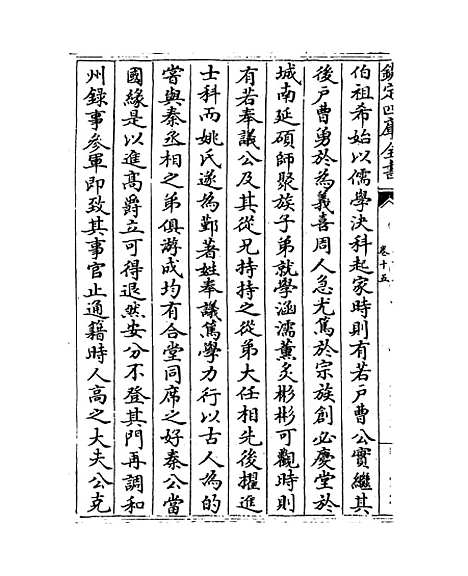 欽定四庫全書
卷十五
伯祖希始以儒學決科起家時則有若戶曹公實繼其
後戶曹勇於為義喜周人急尤篤於宗族創必慶堂於
城南延碩師聚族子弟就學涵濡薰炙彬彬可觀時則
有若奉議公及其從兄持持之從弟大任相先後擢進
士科而姚氏遂為鄞著姓奉議篤學力行以古人為的
嘗與秦丞相之弟俱游成均有合堂同席之好秦公當
國緣是以進高爵立可得退然安分不登其門再調和
州録事參軍即致其事官止通籍時人高之大夫公克